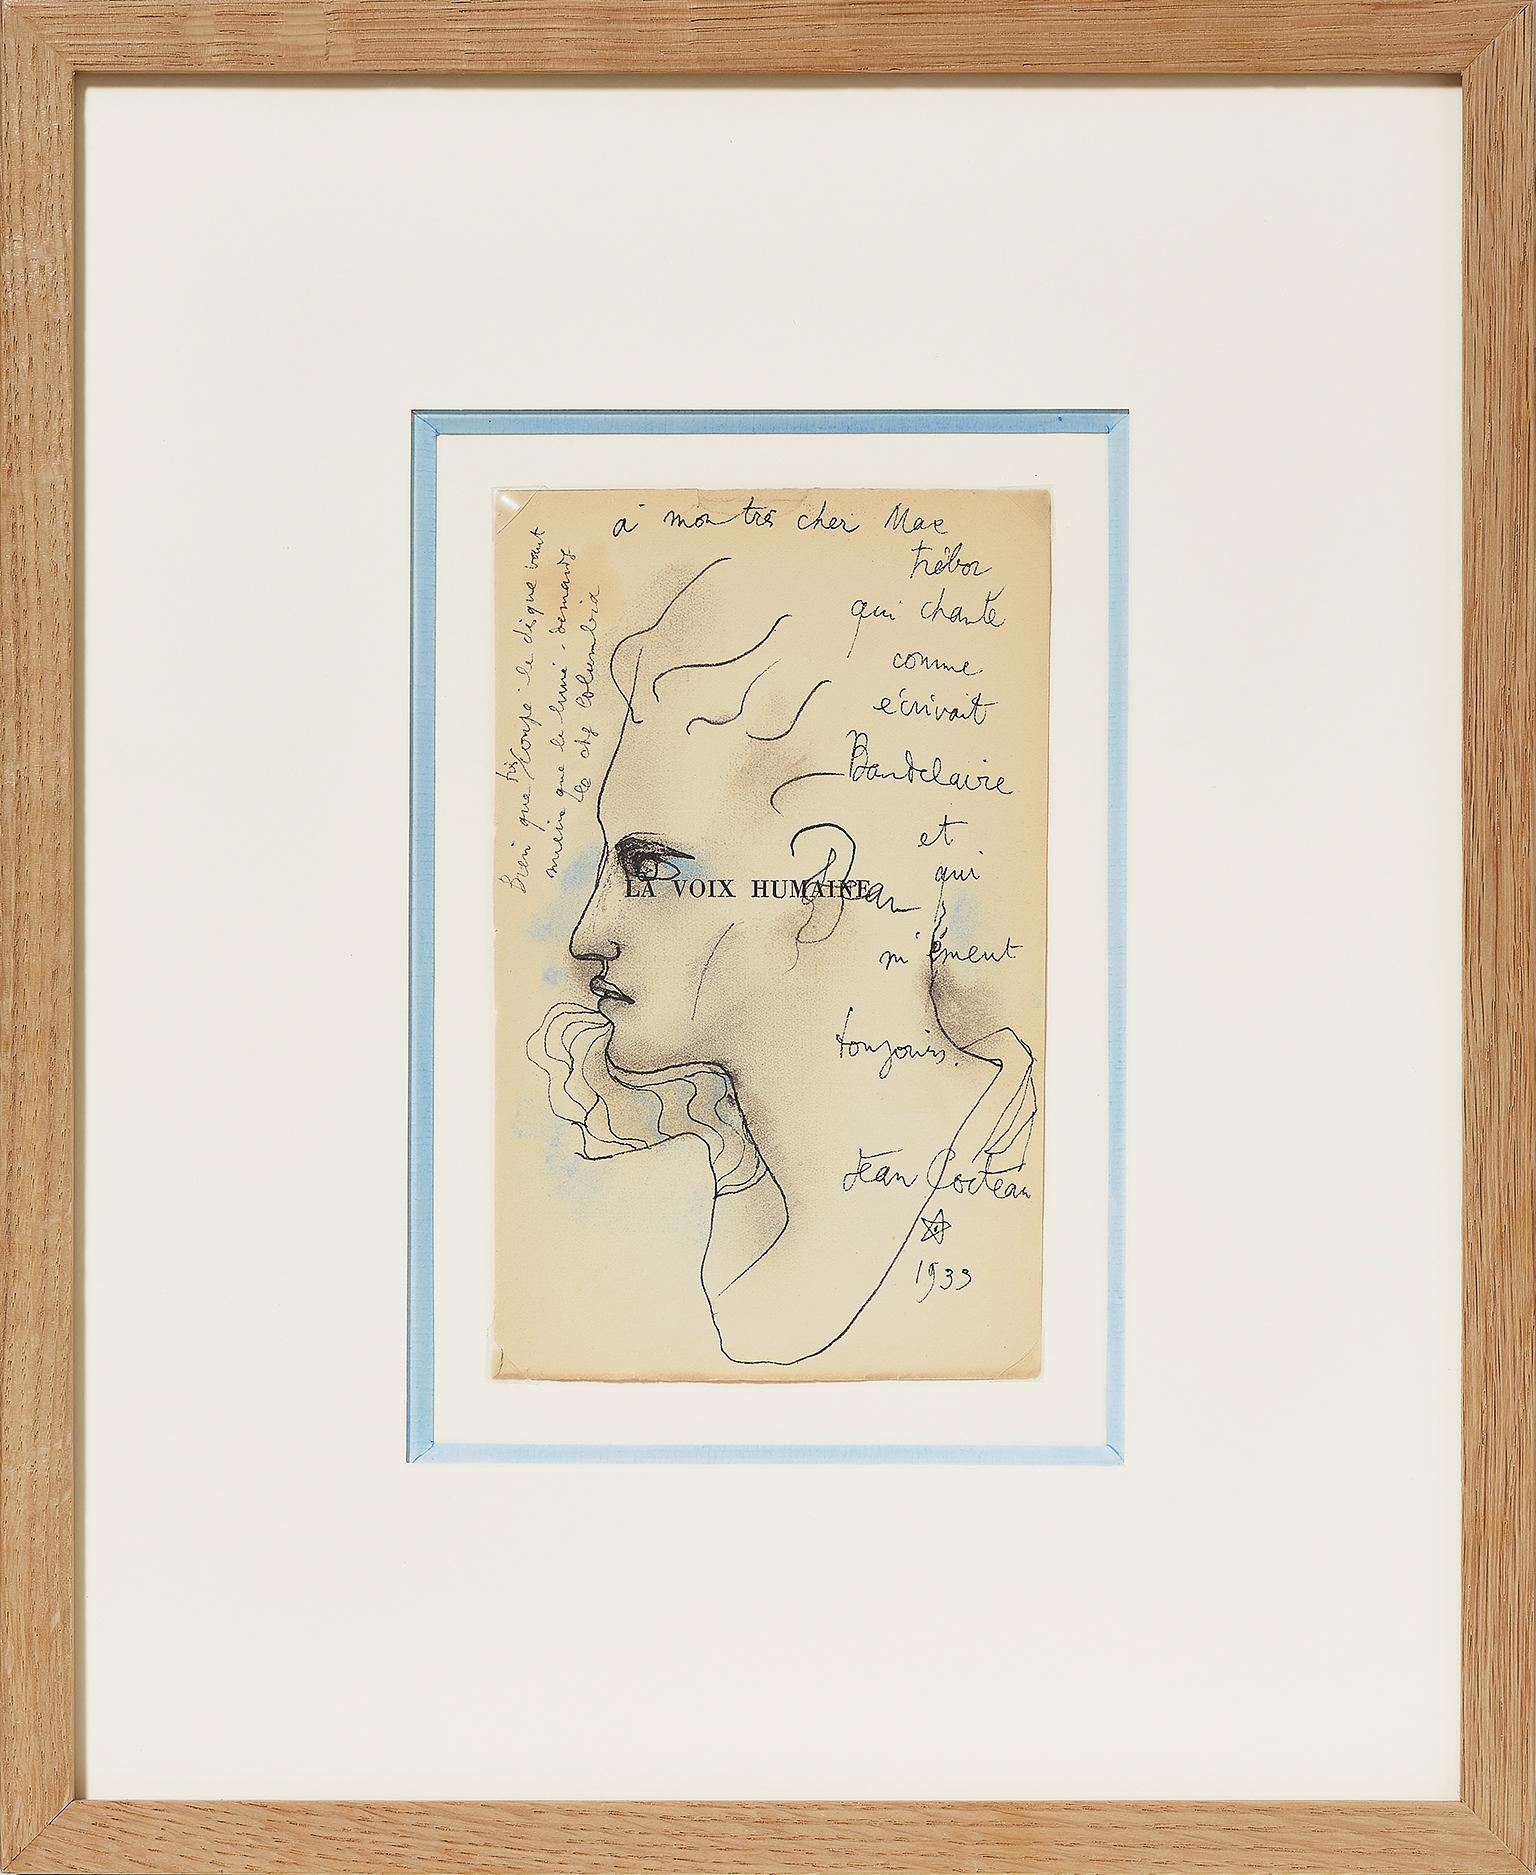 à mon très cher Max
Trébor
qui chante
comme
écrivait
Baudelaire
et
qui
m'émeut
toujours.
Jean
LA VOIX HUMAINE
Jean Cocteau
1933
Bien que très coupé le disque vaut
mieux que le livre. demandez
le chez Columbia